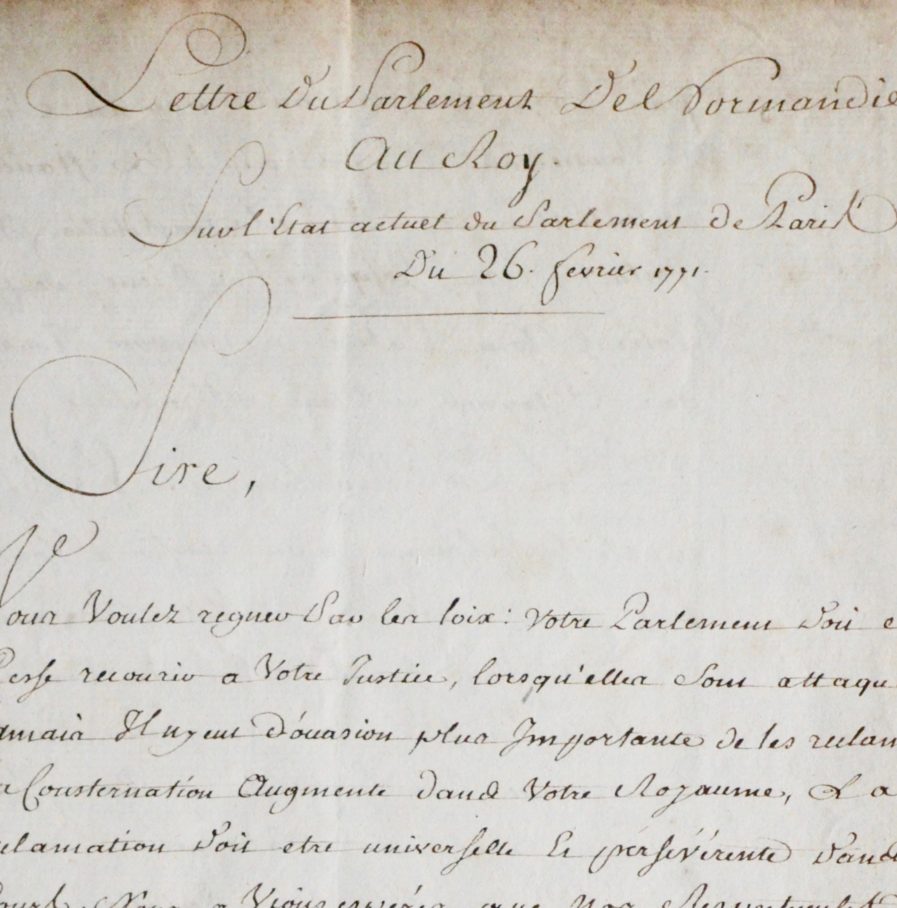 Lettre Du Parlement De Normandie
Au Roy.
Sur l'Etat actuel du Parlement de Paris
Du 26. fevrier 1771.
Sire,
Vous Voulez regner Par les loix: Votre Parlement Doit
Cesse recourir a Votre Justice, lorsqu'elles Sont attaqu
amais Il n'y eut D'ocasion plus Importante de les reclam
la Consternation Augmente dans Votre Royaume, & a
eclamation Doit etre universelle Et persévérente Dans
que nos